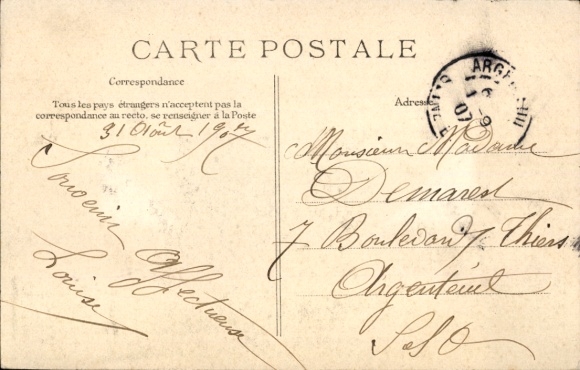 CARTE POSTALE
Correspondance
Tous les pays étrangers n'acceptent pas la
correspondance au recto, se renseigner à la Poste
31 Août 1907
Souvenir
Affectueux
Louise
Adresse
ARGENTEUIL
07
Monsieur Madame
Demarest
7 Boulevard Thiers
Argenteuil
S & O